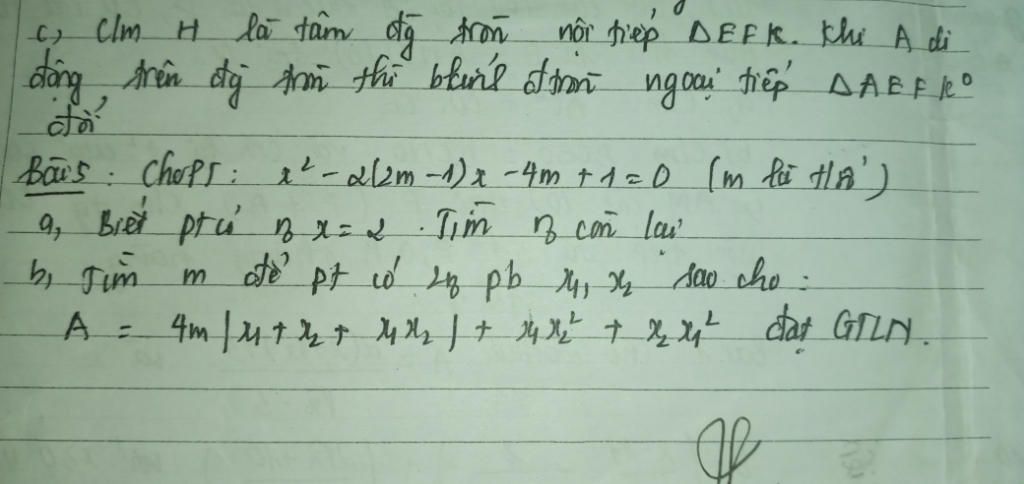 c, C/m H là tâm đg tròn nội tiếp ΔEFK. Khi A di
động trên đg tròn thì bkính đtròn ngoại tiếp ΔAEF k°
đổi
Bài 5: Cho PT: x² - 2(2m - 1)x - 4m + 1 = 0 (m là t/số)
a, Biết pt có n₀ x = 2. Tìm n₀ còn lại
b, Tìm m để pt có 2n₀ pb x₁, x₂ sao cho:
A = 4m|x₁ + x₂ + x₁x₂| + x₁x₂² + x₂x₁² đạt GTLN.